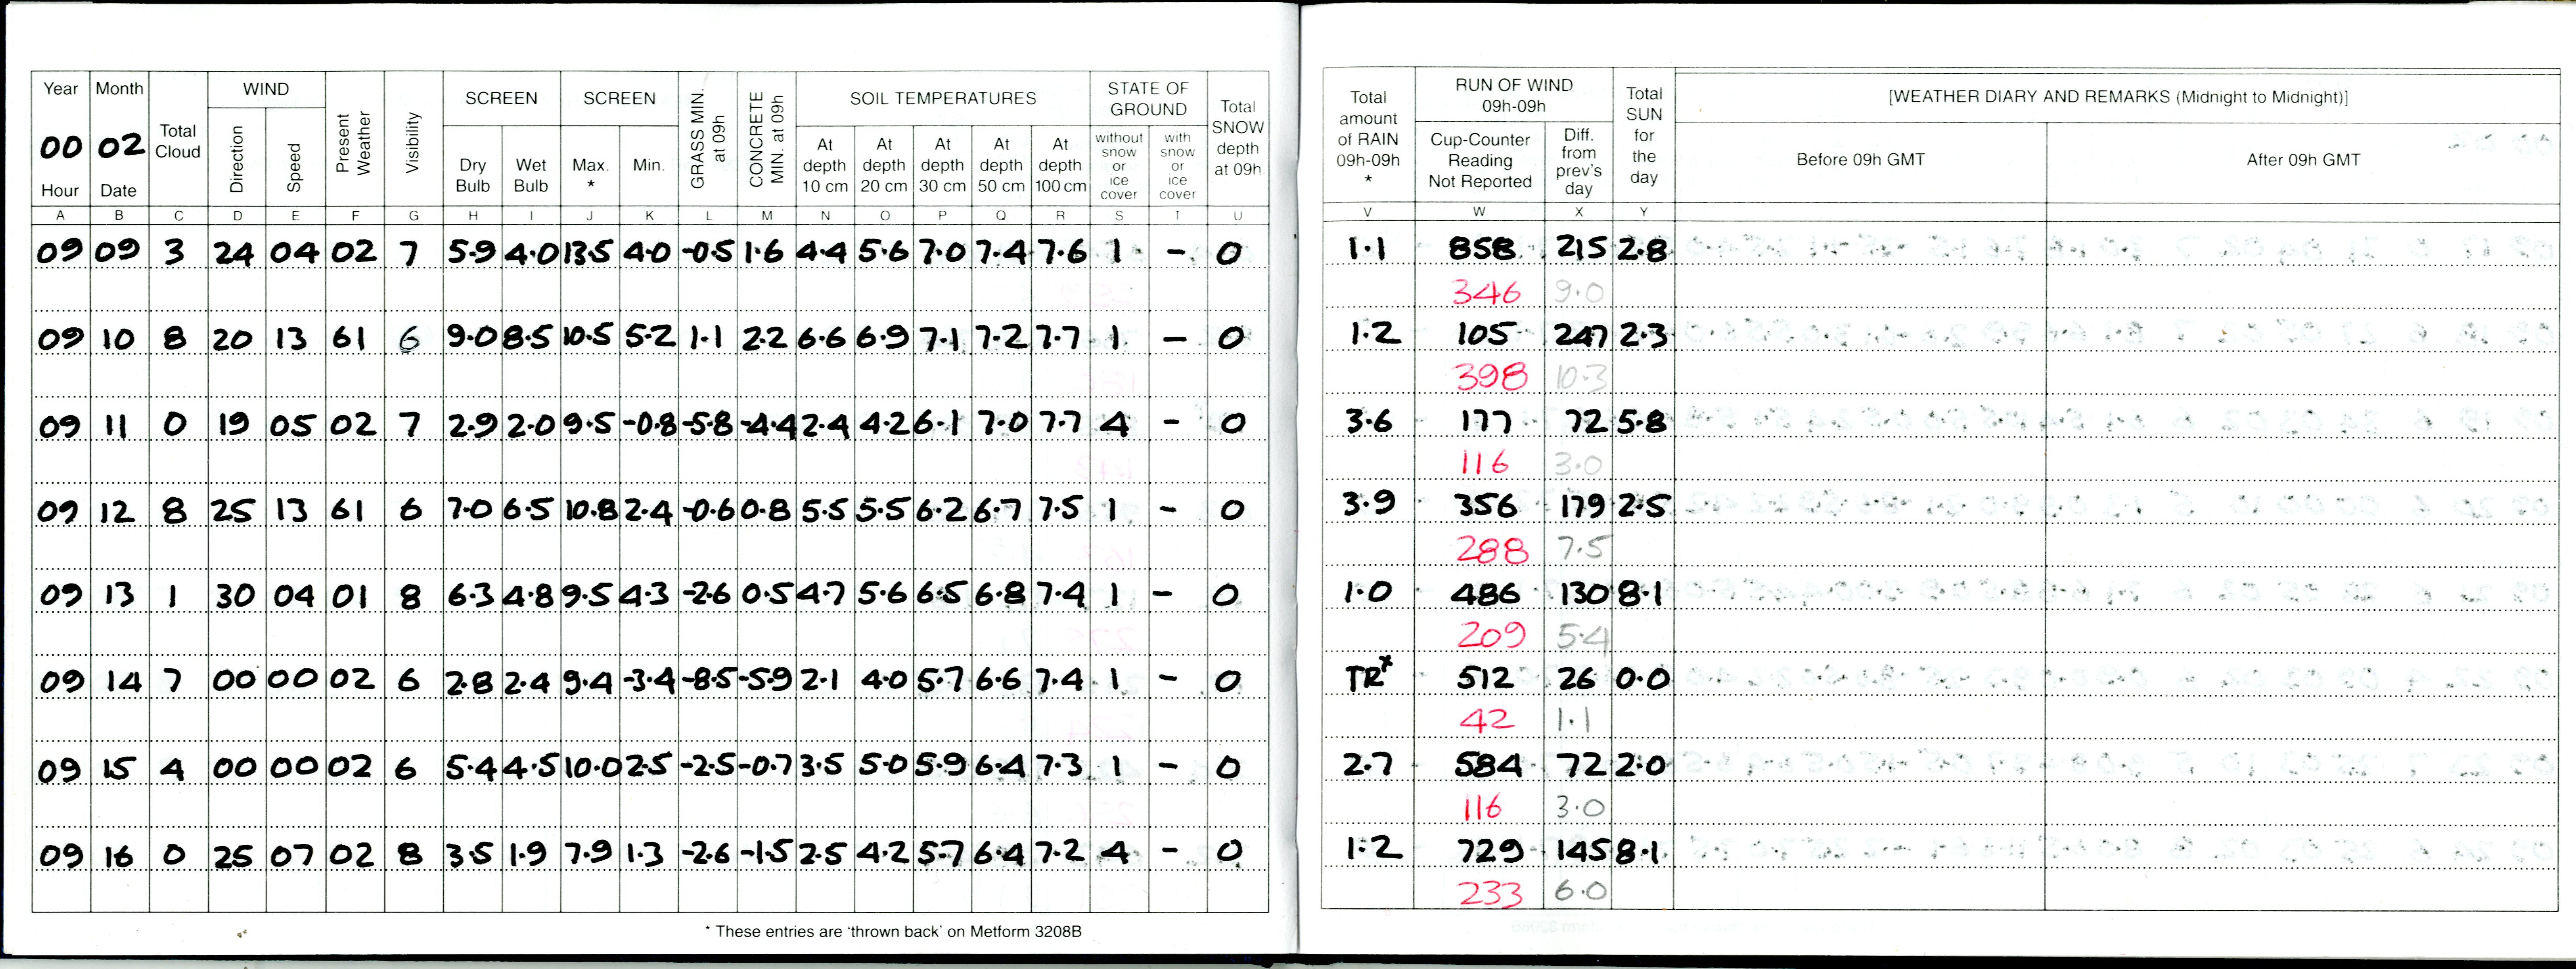 Year Month Total Cloud WIND Present Weather Visibility SCREEN SCREEN GRASS MIN. at 09h CONCRETE MIN. at 09h SOIL TEMPERATURES STATE OF GROUND Total SNOW depth at 09h
00 02 Direction Speed Dry Bulb Wet Bulb Max. * Min. At depth 10 cm At depth 20 cm At depth 30 cm At depth 50 cm At depth 100 cm without snow or ice cover with snow or ice cover
Hour Date
A B C D E F G H I J K L M N O P Q R S T U
09 09 3 24 04 02 7 5.9 4.0 13.5 4.0 -0.5 1.6 4.4 5.6 7.0 7.4 7.6 1 - 0
09 10 8 20 13 61 6 9.0 8.5 10.5 5.2 1.1 2.2 6.6 6.9 7.1 7.2 7.7 1 - 0
09 11 0 19 05 02 7 2.9 2.0 9.5 -0.8 -5.8 -4.4 2.4 4.2 6.1 7.0 7.7 4 - 0
09 12 8 25 13 61 6 7.0 6.5 10.8 2.4 -0.6 0.8 5.5 5.5 6.2 6.7 7.5 1 - 0
09 13 1 30 04 01 8 6.3 4.8 9.5 4.3 -2.6 0.5 4.7 5.6 6.5 6.8 7.4 1 - 0
09 14 7 00 00 02 6 2.8 2.4 9.4 -3.4 -8.5 -5.9 2.1 4.0 5.7 6.6 7.4 1 - 0
09 15 4 00 00 02 6 5.4 4.5 10.0 2.5 -2.5 -0.7 3.5 5.0 5.9 6.4 7.3 1 - 0
09 16 0 25 07 02 8 3.5 1.9 7.9 1.3 -2.6 -1.5 2.5 4.2 5.7 6.4 7.2 4 - 0
* These entries are 'thrown back' on Metform 3208B
Total amount of RAIN 09h-09h * RUN OF WIND 09h-09h Total SUN for the day [WEATHER DIARY AND REMARKS (Midnight to Midnight)]
Cup-Counter Reading Not Reported Diff. from prev's day Before 09h GMT After 09h GMT
V W X Y
1.1 858 215 2.8
346 9.0
1.2 105 247 2.3
398 10.3
3.6 177 72 5.8
116 3.0
3.9 356 179 2.5
288 7.5
1.0 486 130 8.1
209 5.4
TRx 512 26 0.0
42 1.1
2.7 584 72 2.0
116 3.0
1.2 729 145 8.1
233 6.0